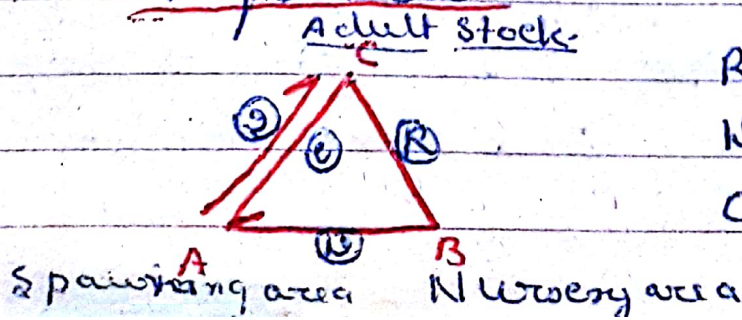 Adult Stock
C
R
2 C R
N
C
N
A B
Spawning area Nursery area